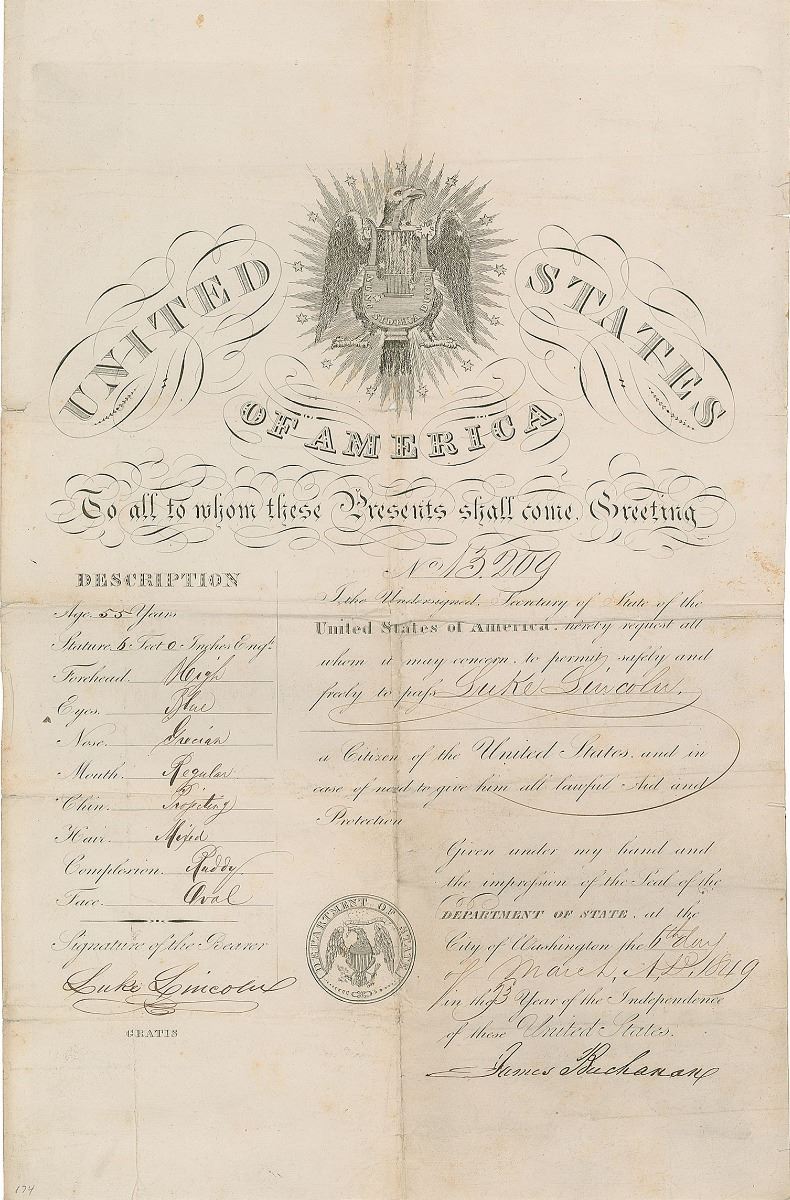 UNITED STATES
OF AMERICA
To all to whom these Presents shall come, Greeting
No 13.209
DESCRIPTION
Age. 55 Years
Stature. 6. Feet 0. Inches Engh.
Forehead. High
Eyes. Blue
Nose. Grecian
Mouth. Regular
Chin. Projecting
Hair. Mixed
Complexion. Ruddy
Face. Oval
Signature of the Bearer
Luke Lincoln
GRATIS
I, the Undersigned, Secretary of State of the
United States of America, hereby request all
whom it may concern, to permit safely and
freely to pass Luke Lincoln,
a Citizen of the United States, and in
case of need to give him all lawful Aid and
Protection
Given under my hand and
the impression of the Seal of the
DEPARTMENT OF STATE, at the
City of Washington the 6th day
of March, A.D. 1849
in the 73 Year of the Independence
of these United States.
James Buchanan
DEPARTMENT OF STATE
174